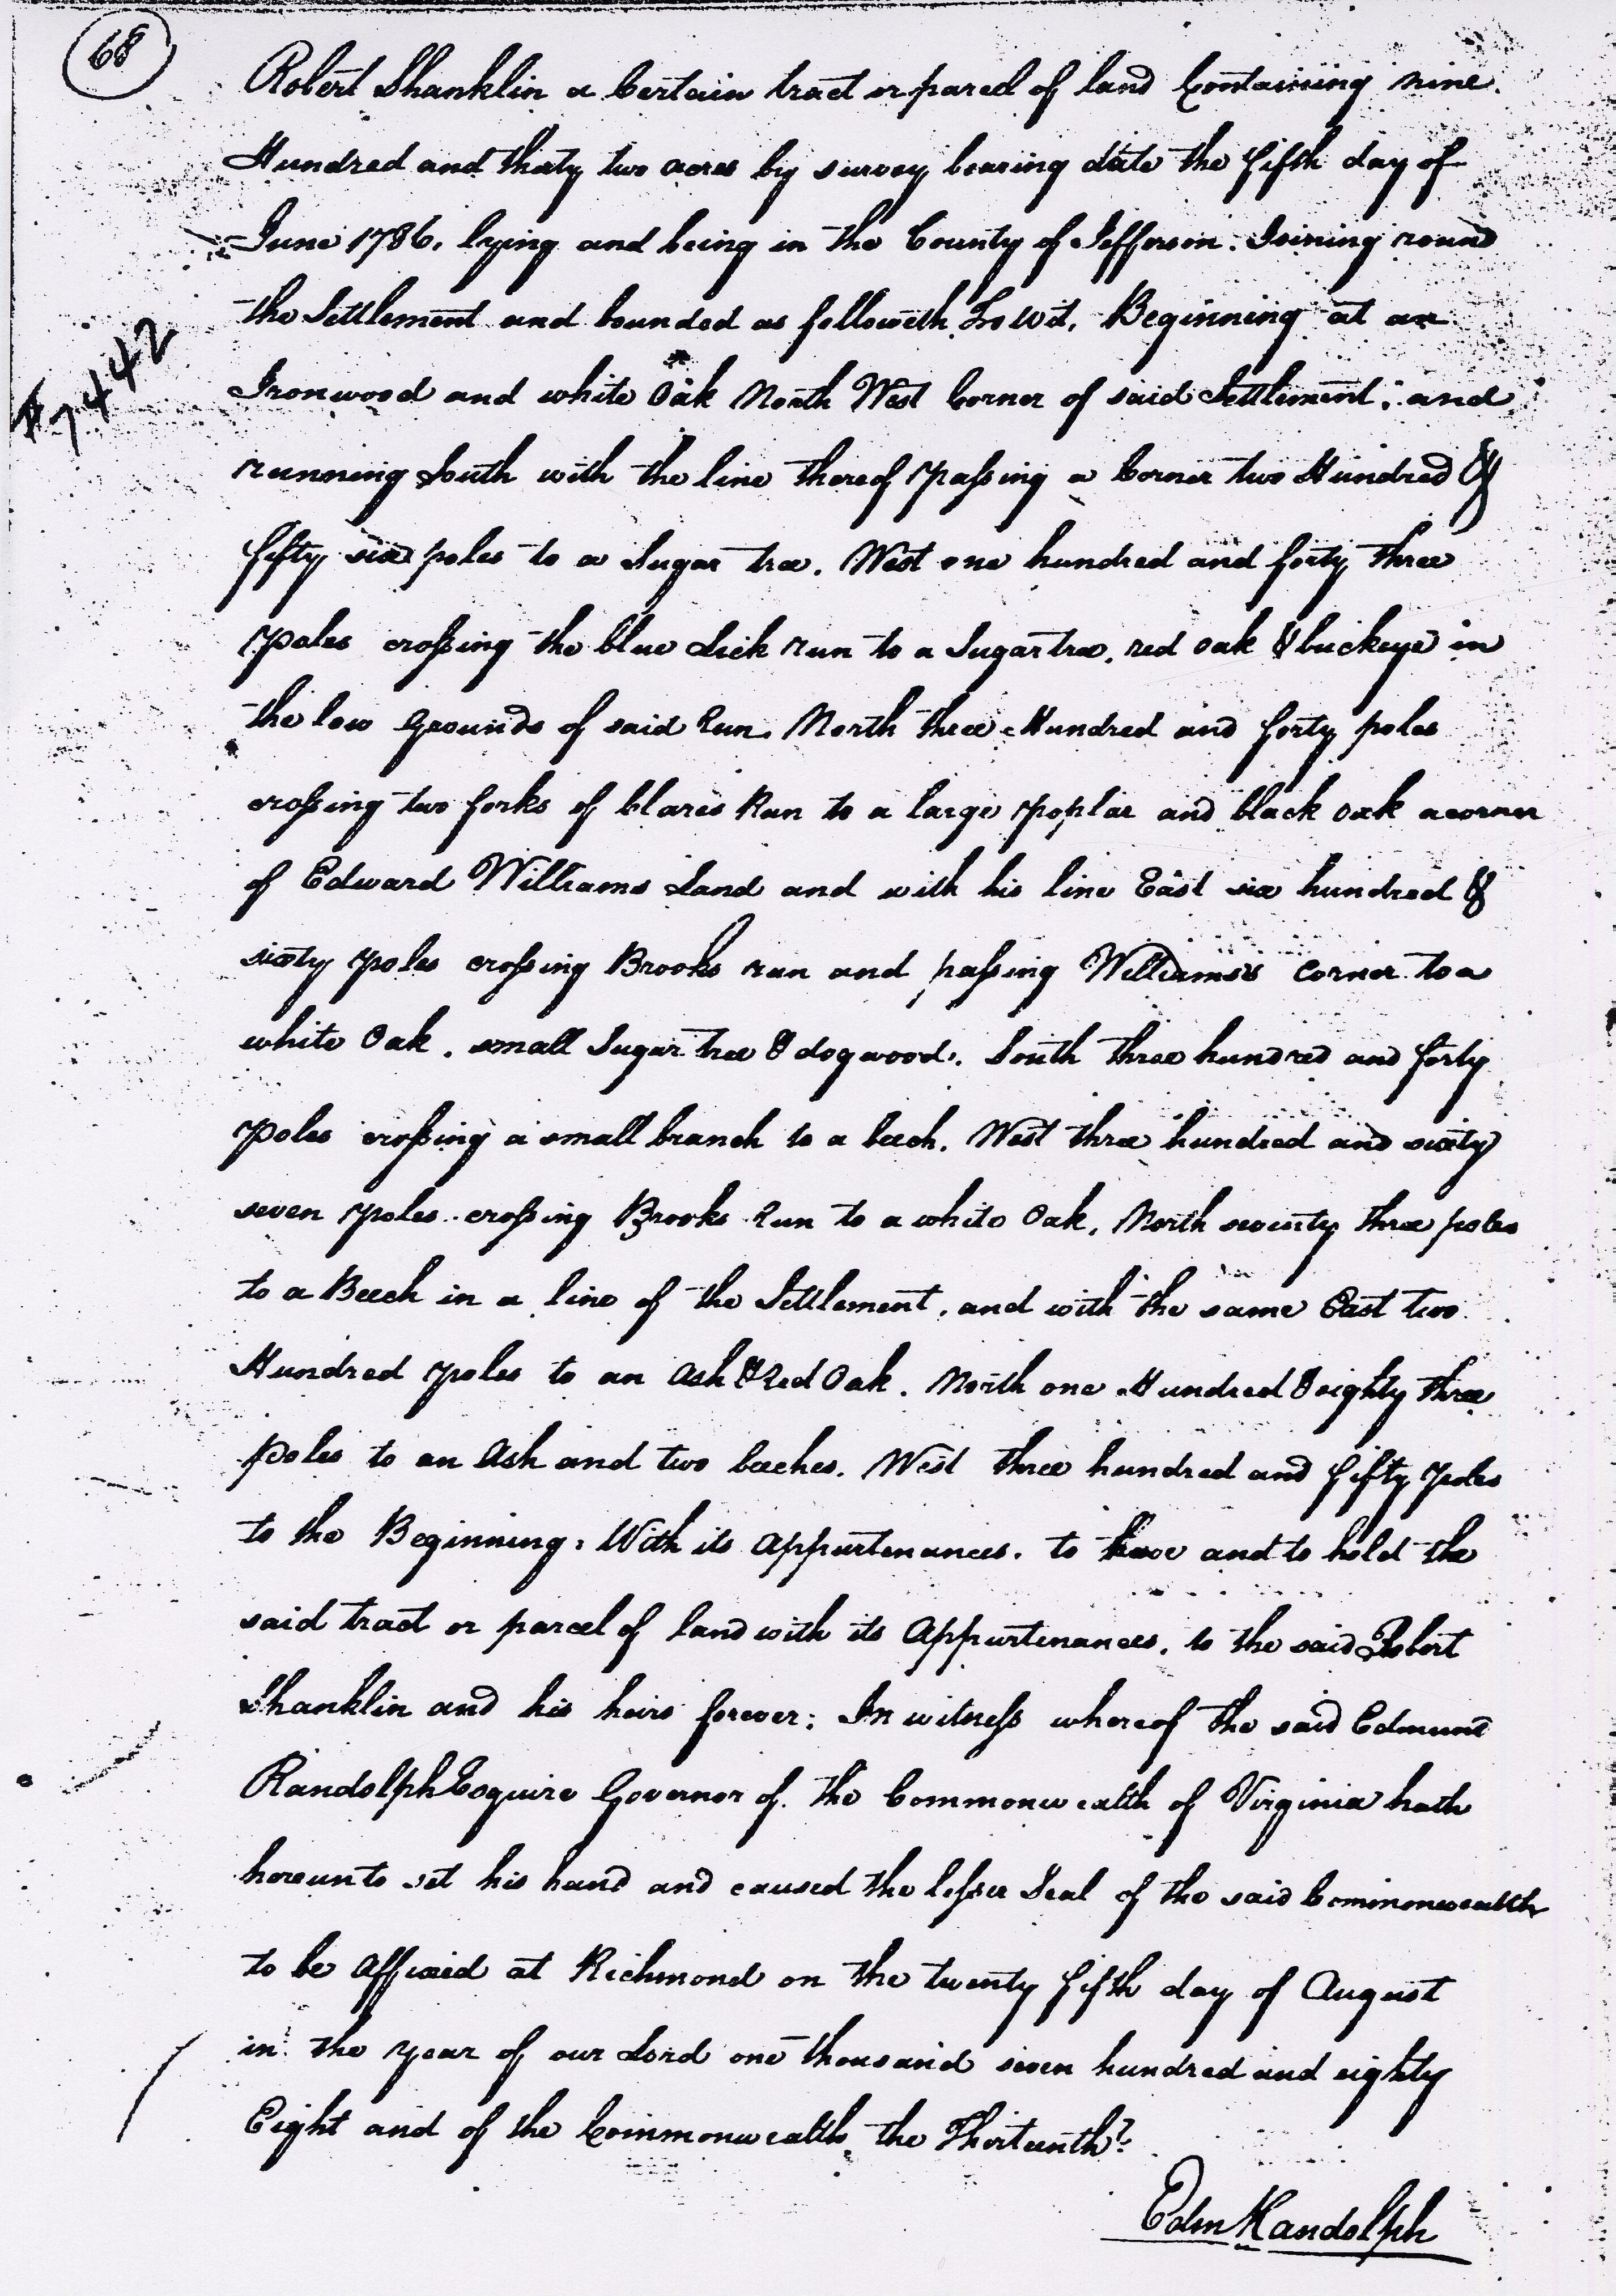 68
Robert Shanklin a Certain tract or parcel of land Containing nine
Hundred and thirty two acres by survey bearing date the fifth day of
June 1786. lying and being in the County of Jefferson. Joining round
the Settlement and bounded as followeth To wit, Beginning at an
#7442
Ironwood and white Oak North West Corner of said Settlement; and
running South with the line thereof passing a Corner two Hundred &
fifty six poles to a Sugar tree. West one hundred and forty three
poles crossing the blue Lick run to a Sugartree, red oak & buckeye in
the low Grounds of said Run. North three Hundred and forty poles
crossing two forks of Clares Run to a large poplar and black oak a corner
of Edward Williams Land and with his line East six hundred &
sixty poles crossing Brooks run and passing Williams's Corner to a
white Oak, small Sugar tree & dogwood. South three hundred and forty
poles crossing a small branch to a beech. West three hundred and sixty
seven poles crossing Brooks Run to a white Oak, North seventy three poles
to a Beech in a line of the Settlement, and with the same East two
Hundred poles to an Ash & Red Oak. North one Hundred & eighty three
poles to an Ash and two beeches. West three hundred and fifty poles
to the Beginning. With its Appurtenances. to have and to hold the
said tract or parcel of land with its Appurtenances, to the said Robert
Shanklin and his heirs forever; In witness whereof the said Edmund
Randolph Esquire Governor of the Commonwealth of Virginia hath
hereunto set his hand and caused the lesser Seal of the said Commonwealth
to be Affixed at Richmond on the twenty fifth day of August
in the year of our Lord one thousand seven hundred and eighty
Eight and of the Commonwealth the Thirteenth.
Edm Randolph